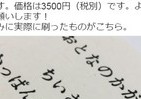 す。価格は3500円（税別）です。よ
願いします！
みに実際に刷ったものがこちら。
おとなのかが
ちい
かっぱん